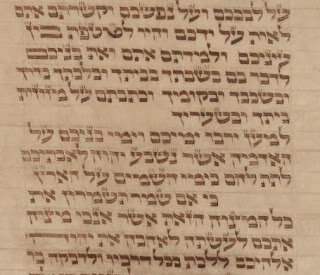 על לבבכם ועל נפשכם וקשרתם אתם
לאות על ידכם והיו לטוטפת בין
עיניכם ולמדתם אתם את בניכם
לדבר בם בשבתך בביתך ובלכתך בדרך
ובשכבך ובקומך וכתבתם על מזוזות
ביתך ובשעריך
למען ירבו ימיכם וימי בניכם על
האדמה אשר נשבע יהוה לאבתיכם
לתת להם כימי השמים על הארץ
כי אם שמר תשמרון את
כל המצוה הזאת אשר אנכי מצוה
אתכם לעשתה לאהבה את יהוה
אלהיכם ללכת בכל דרכיו ולדבקה בו